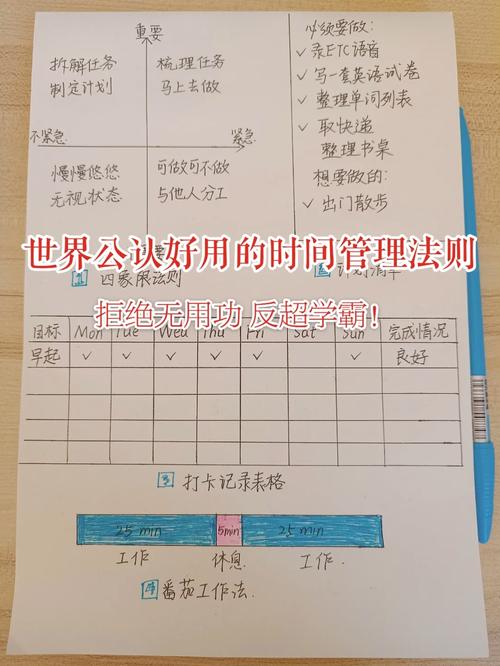 重要
拆解任务
制定计划
梳理任务
马上去做
不紧急
紧急
慢慢悠悠
无视状态
可做可不做
与他人分工
必须要做:
✓ 录ETC语音
✓ 写一套英语试卷
✓ 整理单词列表
✓ 取快递
整理书桌
想要做的:
✓ 出门散步
世界公认好用的时间管理法则
1 四象限法则
计划清单
拒绝无用功 反超学霸!
目标 Mon Tue Wed Thu Fri Sat Sun 完成情况
早起 ✓ ✓ ✓ ✓ ✓ ✓ 良好
3 打卡记录表格
25 min 5min 25 min
工作 休息 工作
4 番茄工作法.